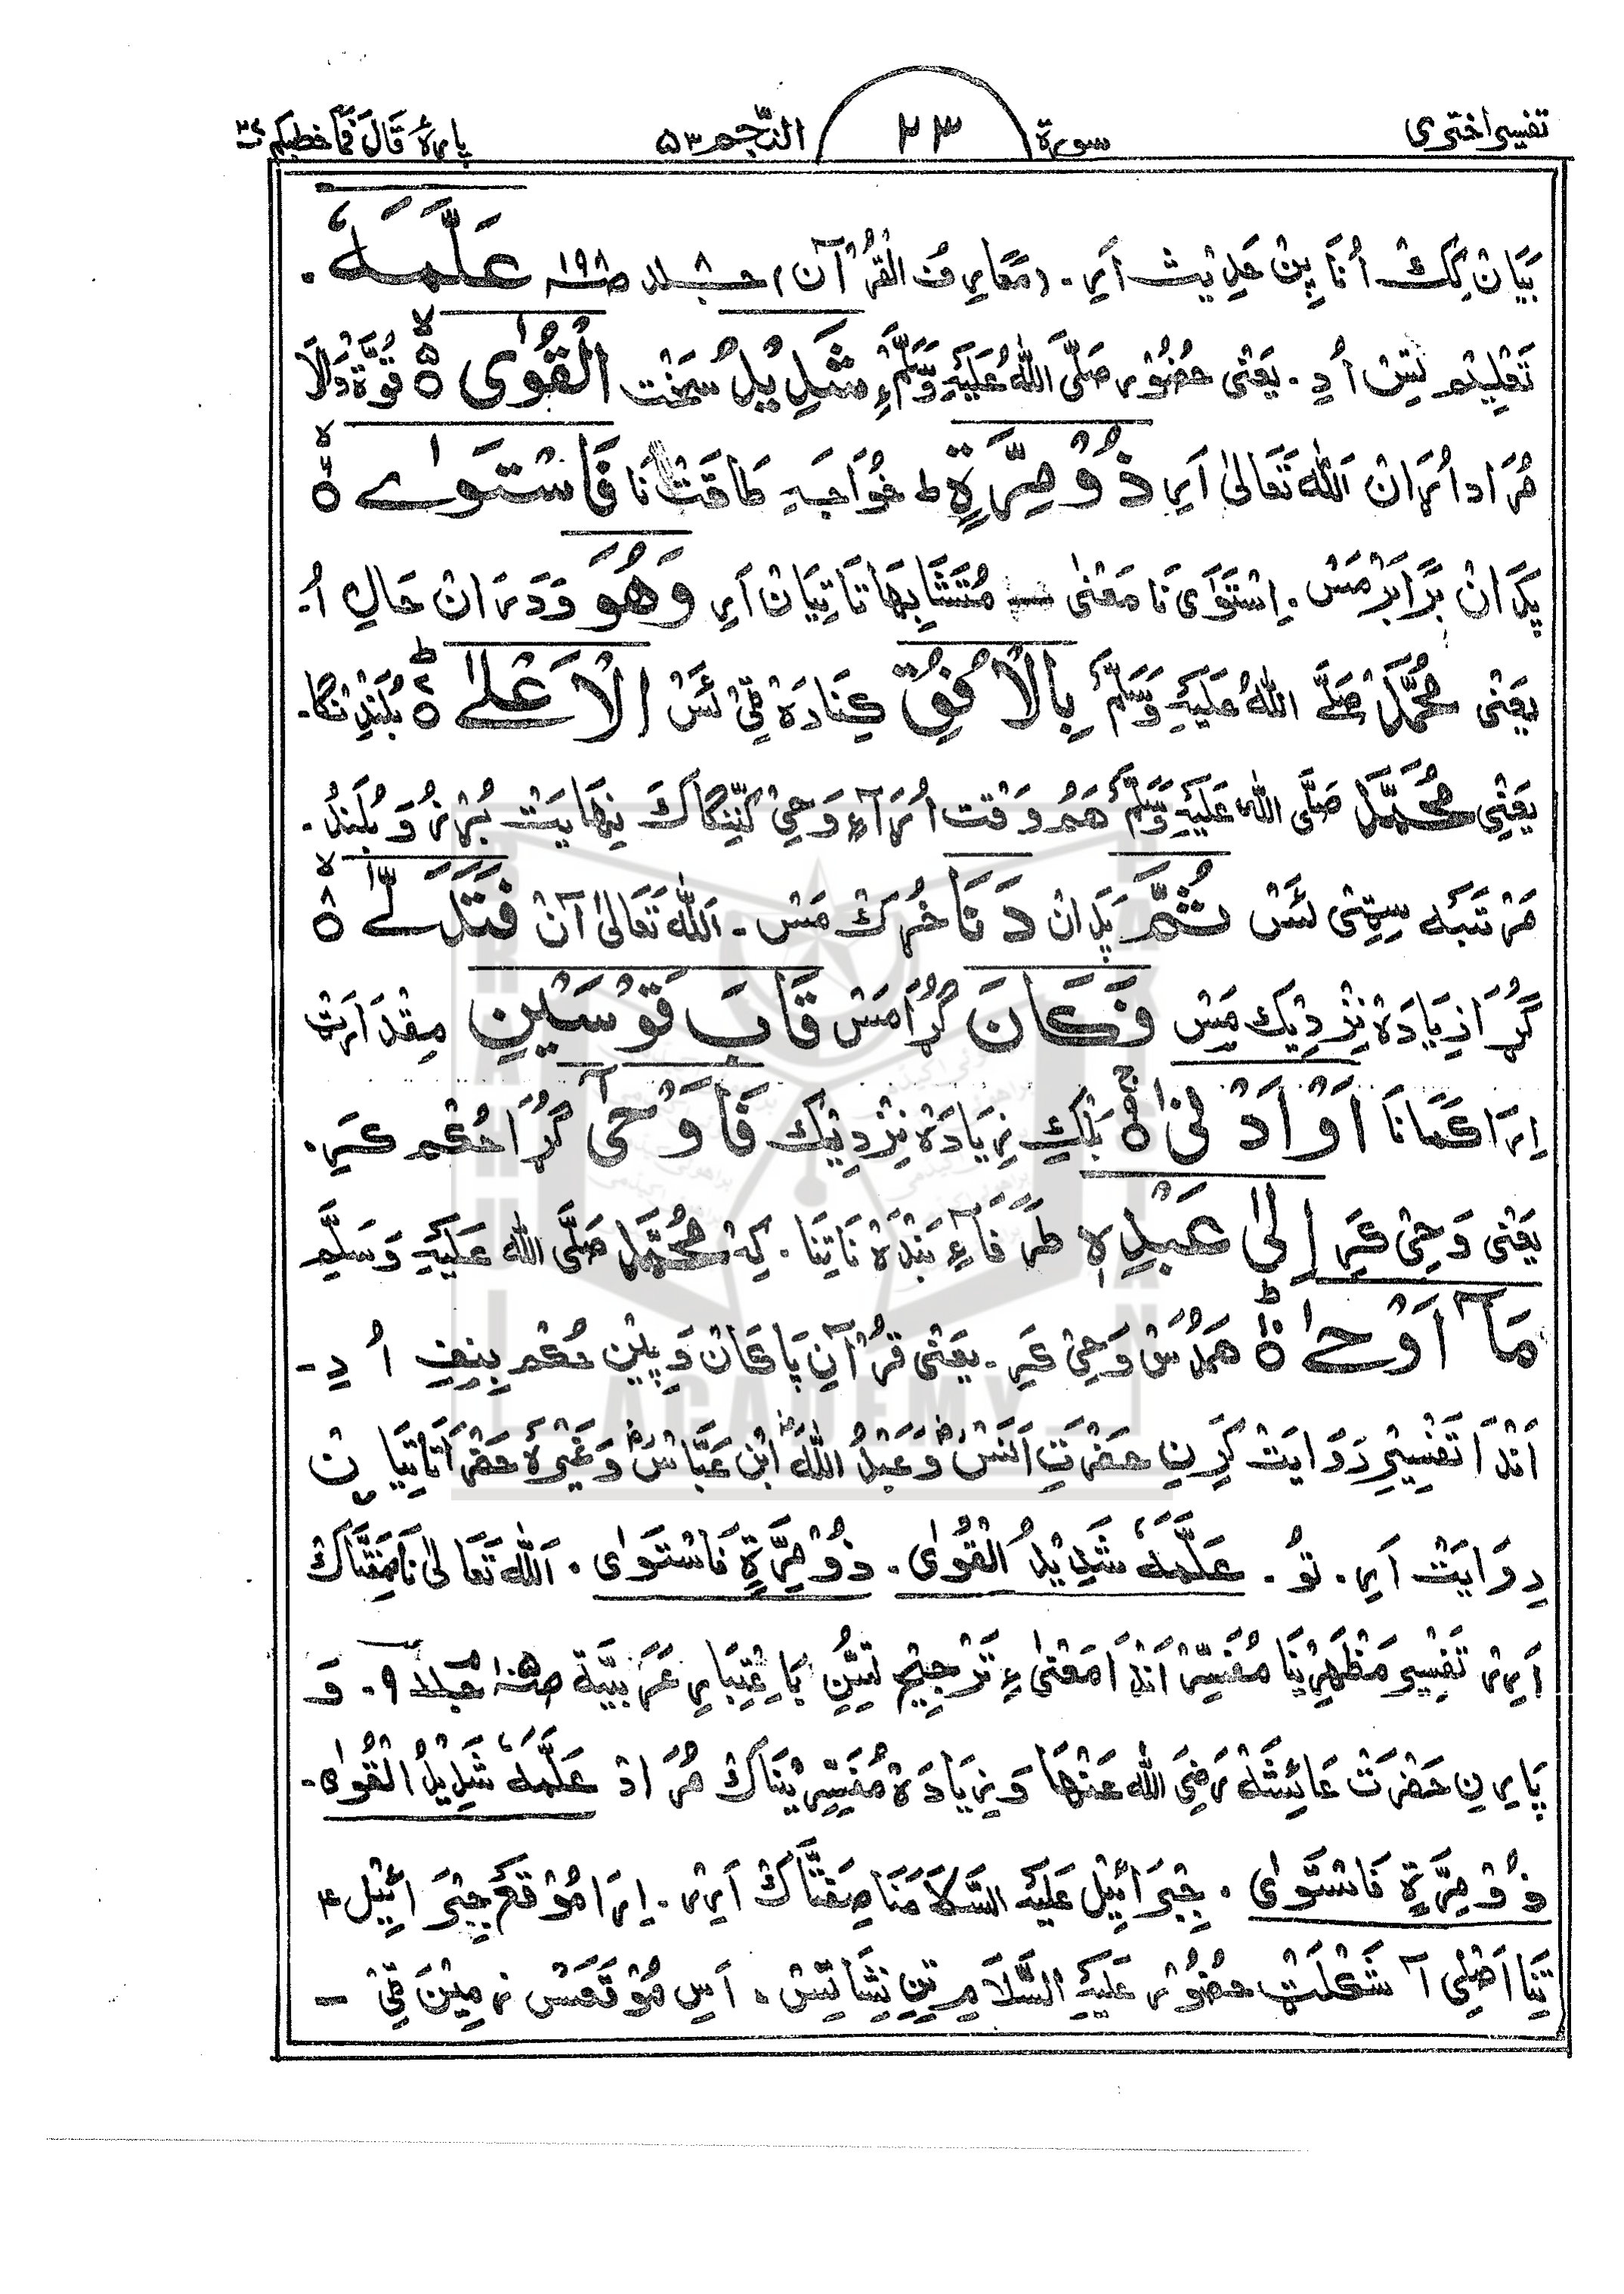 تفسیر اختری سورة ۲۳ النّجم ۵۳ پارۀ قَالَ فَمَا خطبكم ۲۷
بَیَان کِکْ اُنَا پِن حَدِیث اَیِر۔ (مَعَارِفُ الْقُرْآن) جــلد ۸ صـ۱۹۸ عَلَّمَهٗ۔
تَعْلِیْم تِسْ اُدِ۔ یَعْنٰی حضُوْر صَلَّی اللّٰهُ عَلَیْهِ وَسَلَّمْ ءِ شَدِیْدُ سَخْت الْقُوٰی ۵ قُوَّة وَالَا
مُرَاد اُرَان اَللّٰه تَعَالٰی اَیِر ذُوْ مِرَّةٍ ط خُوَاجَه طَاقَتْ نَا فَاسْتَوٰے ۶
پِدَانْ بَرَابَرْ مَسْ۔ اِسْتَوٰی نَا مَعْنٰی مُتَشَابِهَاتَا تِیَان اَیِر وَهُوَ وَدَرَان حَالِ اُ۔
یَعْنٰی مُحَمَّد صَلَّے اللّٰهُ عَلَیْهِ وَسَلَّمْ بِالْاُفُقِ کِنَارَهْ قِیْ ئَسْ الْاَعْلٰے ۷ بُلَنْدِنْگا۔
یَعْنِی مُحَمَّدْ صَلَّی اللّٰه عَلَیْهِ وَسَلَّمْ هَمُو وَقْت اُرَا وَحِیْ کِنِّنْگاکَ نِهَایَتْ بُرْزُ وَ بُلَنْدُ۔
مَرْتَبَه سِیٹی ئَسْ ثُمَّ پِدَان دَنَا خُرُکْ مَسْ۔ اَللّٰه تَعَالٰی آنْ فَتَدَلّٰے ۸
گُرَا زِیَادَهْ نِزْدِیْک مَسْ فَکَانَ گُرَا مَسْ قَابَ قَوْسَیْنِ مِقْدَارَٹْ
اِرَا کَمَانَا اَوْ اَدْنٰی ۹ بَلْکِ زِیَادَهْ نِزْدِیْک فَاَوْحٰی گُرَا حُکْم کَرِ۔
یَعْنٰی وَحِیْ کَرِ اِلٰی عَبْدِهٖ طَرَفَا ءِ بَنْدَهْ نَاتِنَا۔ کِهْ مُحَمَّد صَلَّی اللّٰه عَلَیْهِ وَسَلَّم
مَآ اَوْحٰے ۱۰ هَمْدُسْ وَحِیْ کَرِ۔ یَعْنٰی قُرْآنِ پَاکَان وَ پِیْن حُکْم پِنِفِ اُدِ۔
اَنْدَا تَفْسِیْرِ رِوَایَتْ کَرِنِ حَضْرَتِ اَنَسْؓ وَ عَبْدُ اللّٰهؓ ابْن عَبَّاسؓ وَغَیْرَهْ حَضْرَاتَاتِیَان
رِوَایَتْ اَیِر۔ تُو۔ عَلَّمَهٗ شَدِیْدُ الْقُوٰی۔ ذُوْ مِرَّةٍ فَاسْتَوٰی۔ اَللّٰه تَعَالٰی نَا صِفَتَّاکْ
اَیِرْ تَفْسِیر مَظْهَرِیْ نَا مُفَسِّرْ اَنْدَا مَعْنٰی ءِ تَرْجِیْح تِسُّن بَاِعْتِبَارِ عَرَبِیَّة صـ۱۰۵ جلد ۹۔ وَ
پَارِنِ حَضْرَتْ عَائِشَه رَضِیَ اللّٰه عَنْهَا وَ زِیَادَهْ مُفَسِّرِیْنَاکْ مُرَادْ عَلَّمَهٗ شَدِیْدُ الْقُوٰی۔
ذُوْ مِرَّةٍ فَاسْتَوٰی۔ جِبْرَائِیْل عَلَیْه السَّلَام نَا صِفَتَّاکْ اَیِرْ۔ اِرَا مُوْقَعْ جِبْرَائِیْل ؑ
تِنَا اَصْلِی آ شَکْلَٹْ حضُوْر عَلَیْهِ السَّلَام تِن نِشَاتِسْ۔ اَسِ مُوْقَعَسْ زَمِیْنَ قِیْ ـ
BRAHUI
ACADEMY